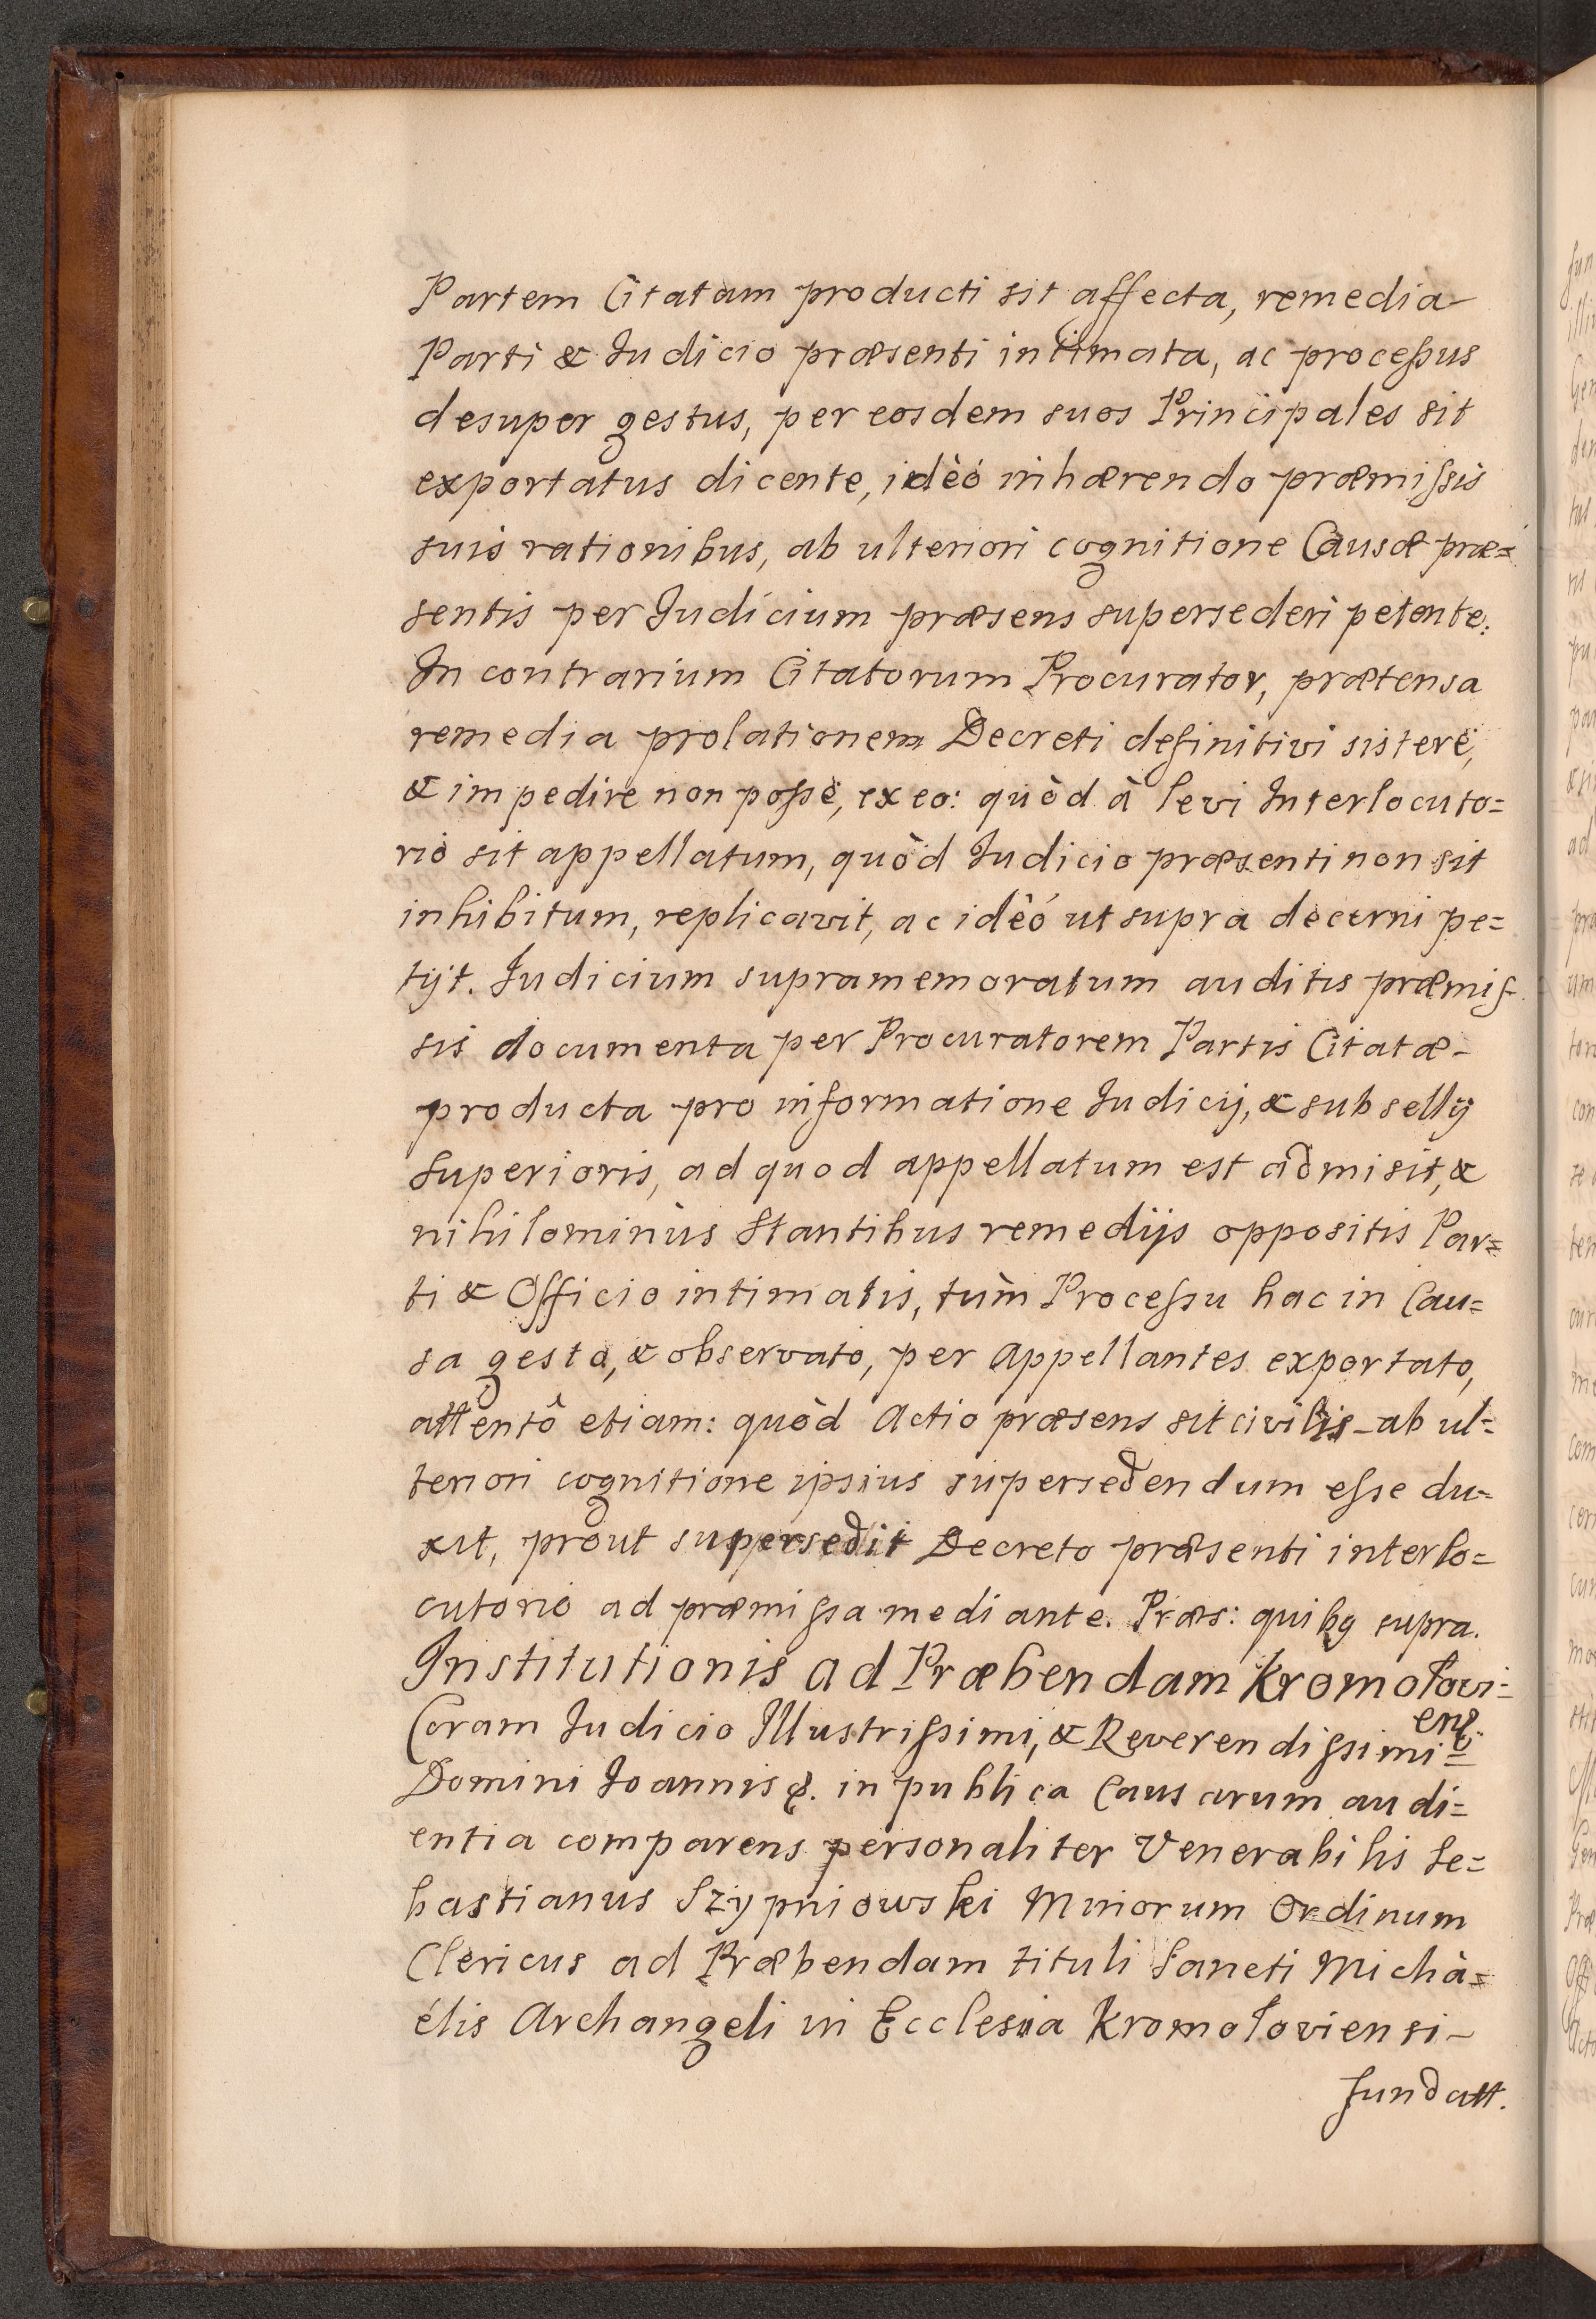 Partem Citatam producti sit affecta, remedia
Parti & Iudicio præsenti intimata, ac processus
desuper gestus, per eosdem suos Principales sit
exportatus dicente, idèó inhærendo præmissis
suis rationibus, ab ulteriori cognitione Causæ præ=
sentis per Iudicium præsens supersederi petente:
In contrarium Citatorum Procurator, prætensa
remedia prolationem Decreti definitivi sistere,
& impedire non posse, ex eo: quòd à levi Interlocuto=
rio sit appellatum, quòd Iudicio præsenti non sit
inhibitum, replicavit, ac idèó ut supra decerni pe=
tijt. Iudicium supramemoratum auditis præmis
sis documenta per Procuratorem Partis Citatæ
producta pro informatione Iudicij, & subsellij
superioris, ad quod appellatum est admisit, &
nihilominùs stantibus remedijs oppositis Par=
ti & Officio intimatis, tùm Processu hac in Cau=
sa gesto, & observato, per Appellantes exportato,
attentô etiam: quòd Actio præsens sit civilis ab ul=
teriori cognitione ipsius supersedendum esse du=
xit, prout supersedit Decreto præsenti interlo=
cutorio ad præmissa mediante. Præs: quibg supra.
Institutionis ad Præbendam Kromołovi=
ens.
Coram Iudicio Illustrissimi, & Reverendissimi=
Domini Ioannis &. in publica Causarum audi=
entia comparens personaliter Venerabilis Se=
bastianus Szypniowski Minorum Ordinum
Clericus ad Præbendam tituli Sancti Michà=
élis Archangeli in Ecclesia Kromołoviensi
fundatt.